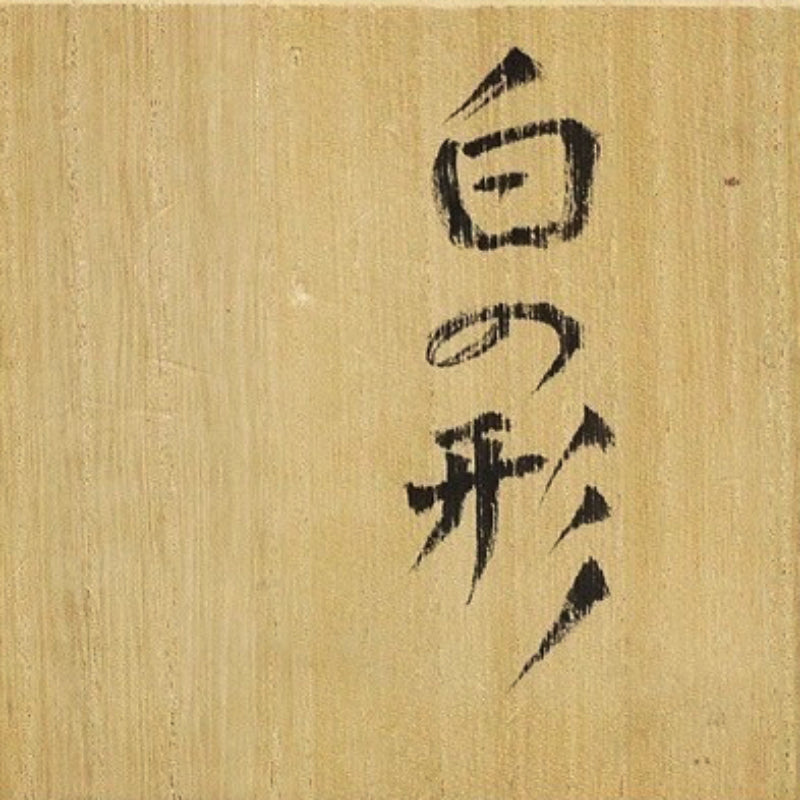 白の形